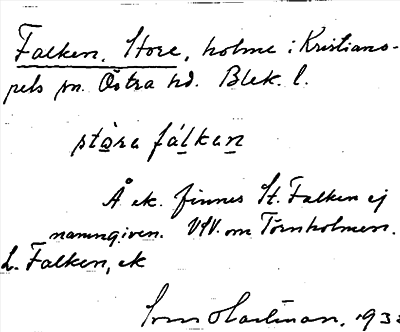 Falken, Store, holme i Kristiano-
pels sn. Östra hd. Blek. l.
stòra fálkan
Å ek. finnes St. Falken ej
namngiven. VSV. om Törnholmen.
L. Falken, ek
Hartman, 193